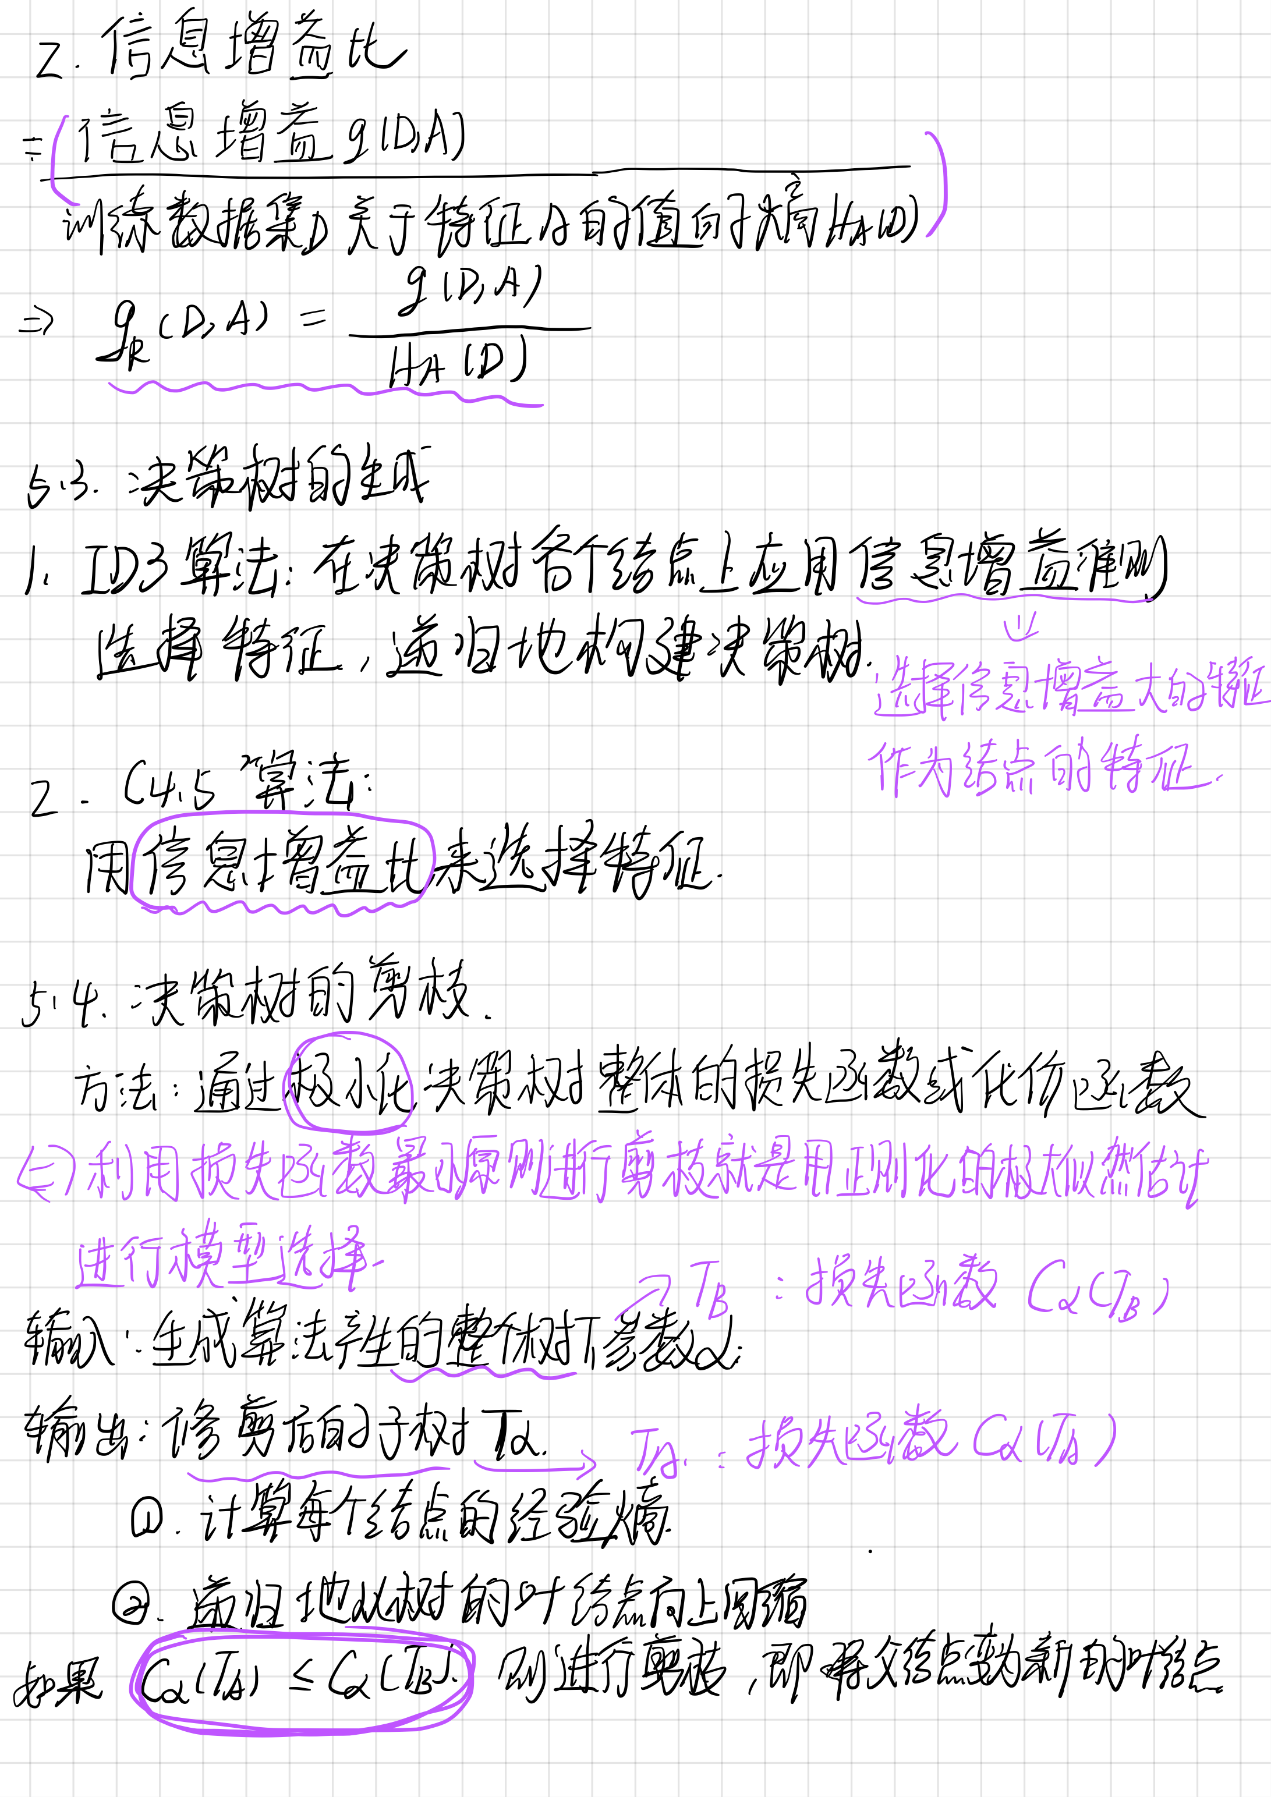 2. 信息增益比
= 信息增益 g(D,A)
训练数据集D关于特征A的值的熵HA(D)
⇒ gR(D,A) = g(D,A)
HA(D)
5.3. 决策树的生成
1. ID3算法: 在决策树各个结点上应用信息增益准则
选择特征, 递归地构建决策树.
⇓
选择信息增益大的特征
作为结点的特征.
2. C4.5 算法:
用信息增益比来选择特征.
5.4. 决策树的剪枝.
方法: 通过极小化决策树整体的损失函数或代价函数
⇔利用损失函数最小原则进行剪枝就是用正则化的极大似然估计
进行模型选择.
→TB : 损失函数 Cα(TB)
输入: 生成算法产生的整个树T 参数α;
输出: 修剪后的子树 Tα.
→ TA : 损失函数 Cα(TA)
①. 计算每个结点的经验熵.
②. 递归地从树的叶结点向上回缩
如果 Cα(TA) ≤ Cα(TB). 则进行剪枝, 即将父结点变为新的叶结点